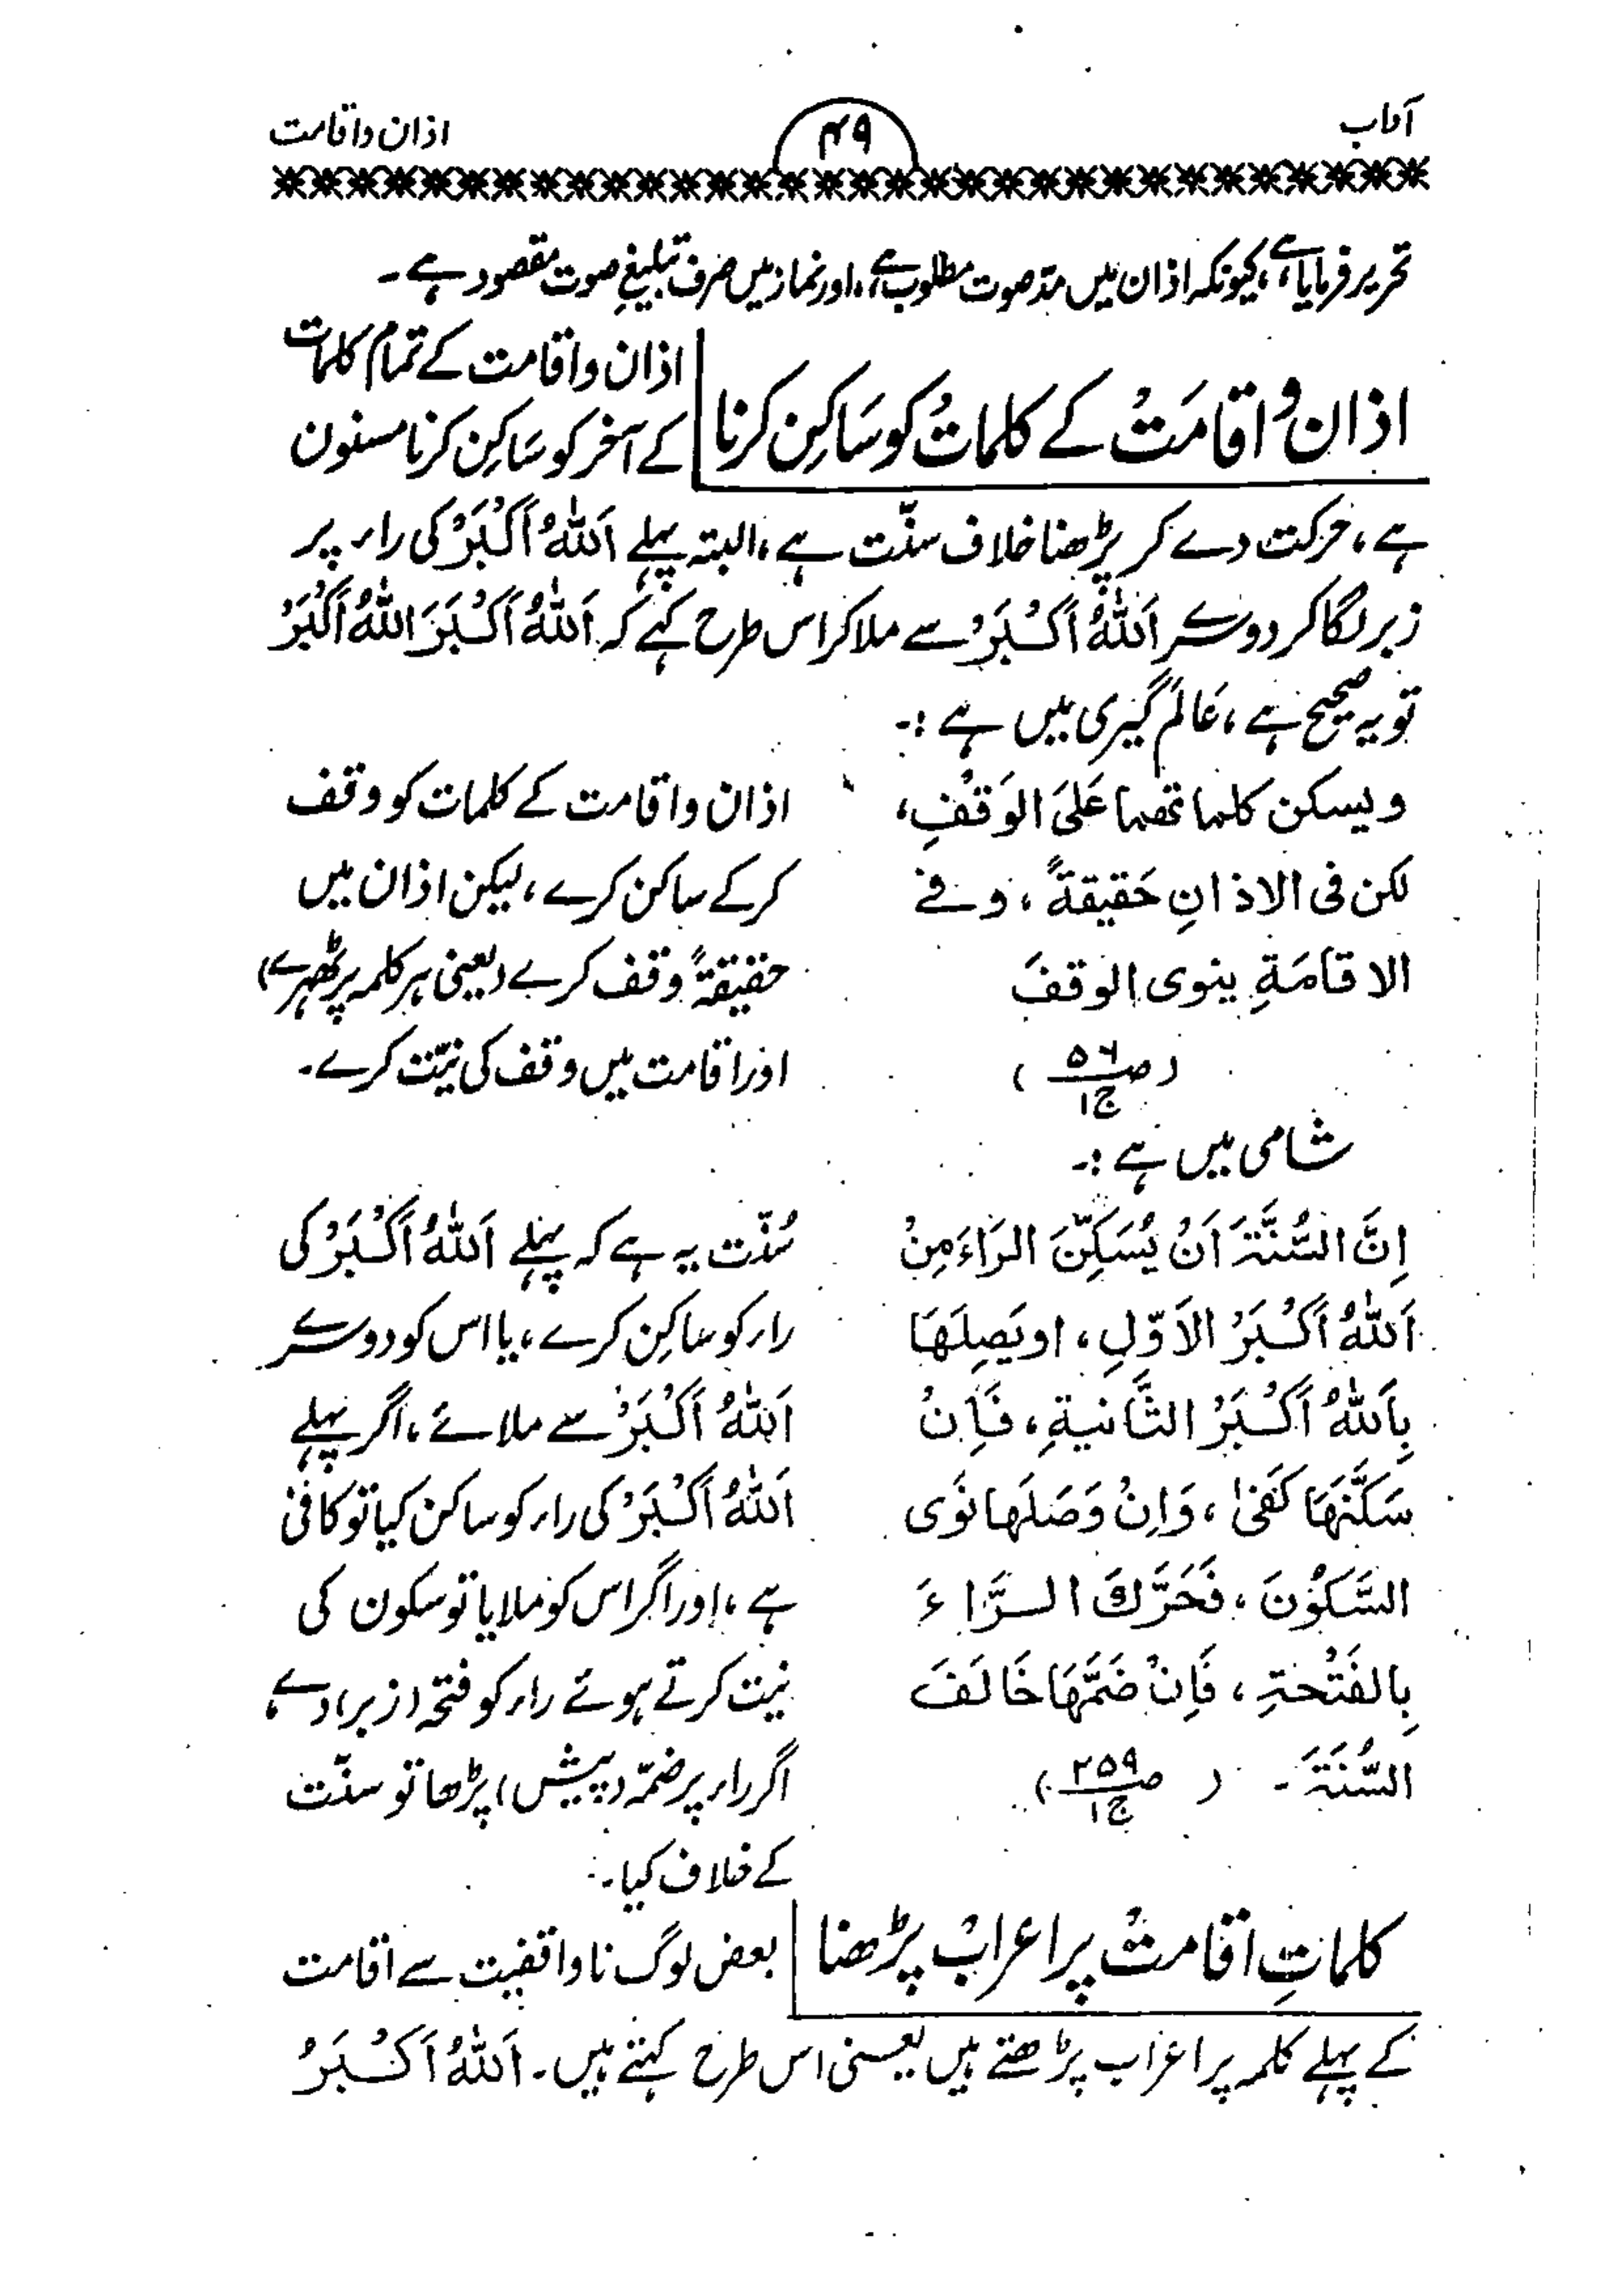 آداب
۴۹
اذان واقامت
تحریر فرمایا ہے، کیونکہ اذان میں مدّ صوت مطلوب ہے، اور نماز میں صرف تبلیغِ صوت مقصود ہے۔
اذان و اقامَتْ کے کلماتْ کو سَاکِن کرنا
اذان واقامت کے تمام کلمات
کے آخر کو سَاکِن کرنا مسنون
ہے، حرکت دے کر پڑھنا خلاف سنّت ہے، البتہ پہلے اَللهُ اَکْبَرْ کی راء پر
زبر لگا کر دوسرے اَللهُ اَکْبَرْ سے ملا کر اس طرح کہے کہ اَللهُ اَکْبَرَ اللهُ اَکْبَرْ
تو یہ صحیح ہے، عَالمگیری میں ہے :۔
ویسکن کلماتھما عَلیَ الوَقْفِ،
لکن فی الاذانِ حَقیقةً، و فے
الاقامَةِ ینوی الوقفَ
(ص ۵۶ ج ۱)
اذان واقامت کے کلمات کو وقف
کرکے ساکن کرے، لیکن اذان میں
حقیقۃً وقف کرے (یعنی ہر کلمہ پر ٹھہرے)
اور اقامت میں وقف کی نیّت کرے۔
شامی میں ہے :۔
اِنَّ السُّنَّةَ اَنْ یُسَکِّنَ الرَاءَ مِنْ
اَللهُ اَکْبَرْ الاَوّلِ، او یَصِلَهَا
بِاَللهُ اَکْبَرْ الثَّانیةِ، فَاِنْ
سَکَّنَهَا کَفیٰ، وَاِنْ وَصَلَها نَوَی
السَّکُوْنَ، فَحَرَّكَ الرَّاءَ
بِالفَتْحَةِ، فَاِنْ ضَمَّهَا خَالَفَ
السُّنَةَ ۔ (ص ۲۵۹ ج ۱)
سُنّت یہ ہے کہ پہلے اَللهُ اَکْبَرْ کی
راء کو ساکِن کرے، یا اس کو دوسرے
اَللهُ اَکْبَرْ سے ملائے، اگر پہلے
اَللهُ اَکْبَرْ کی راء کو ساکن کیا تو کافی
ہے، اور اگر اس کو ملایا تو سکون کی
نیت کرتے ہوئے راء کو فتحہ (زبر) دے،
اگر راء پر ضمّہ (پیش) پڑھا تو سنّت
کے خلاف کیا۔
کلماتِ اقامتْ پر اعرابْ پڑھنا
بعض لوگ ناواقفیت سے اقامت
کے پہلے کلمہ پر اعراب پڑھتے ہیں یعنی اس طرح کہتے ہیں۔ اَللهُ اَکْبَرُ